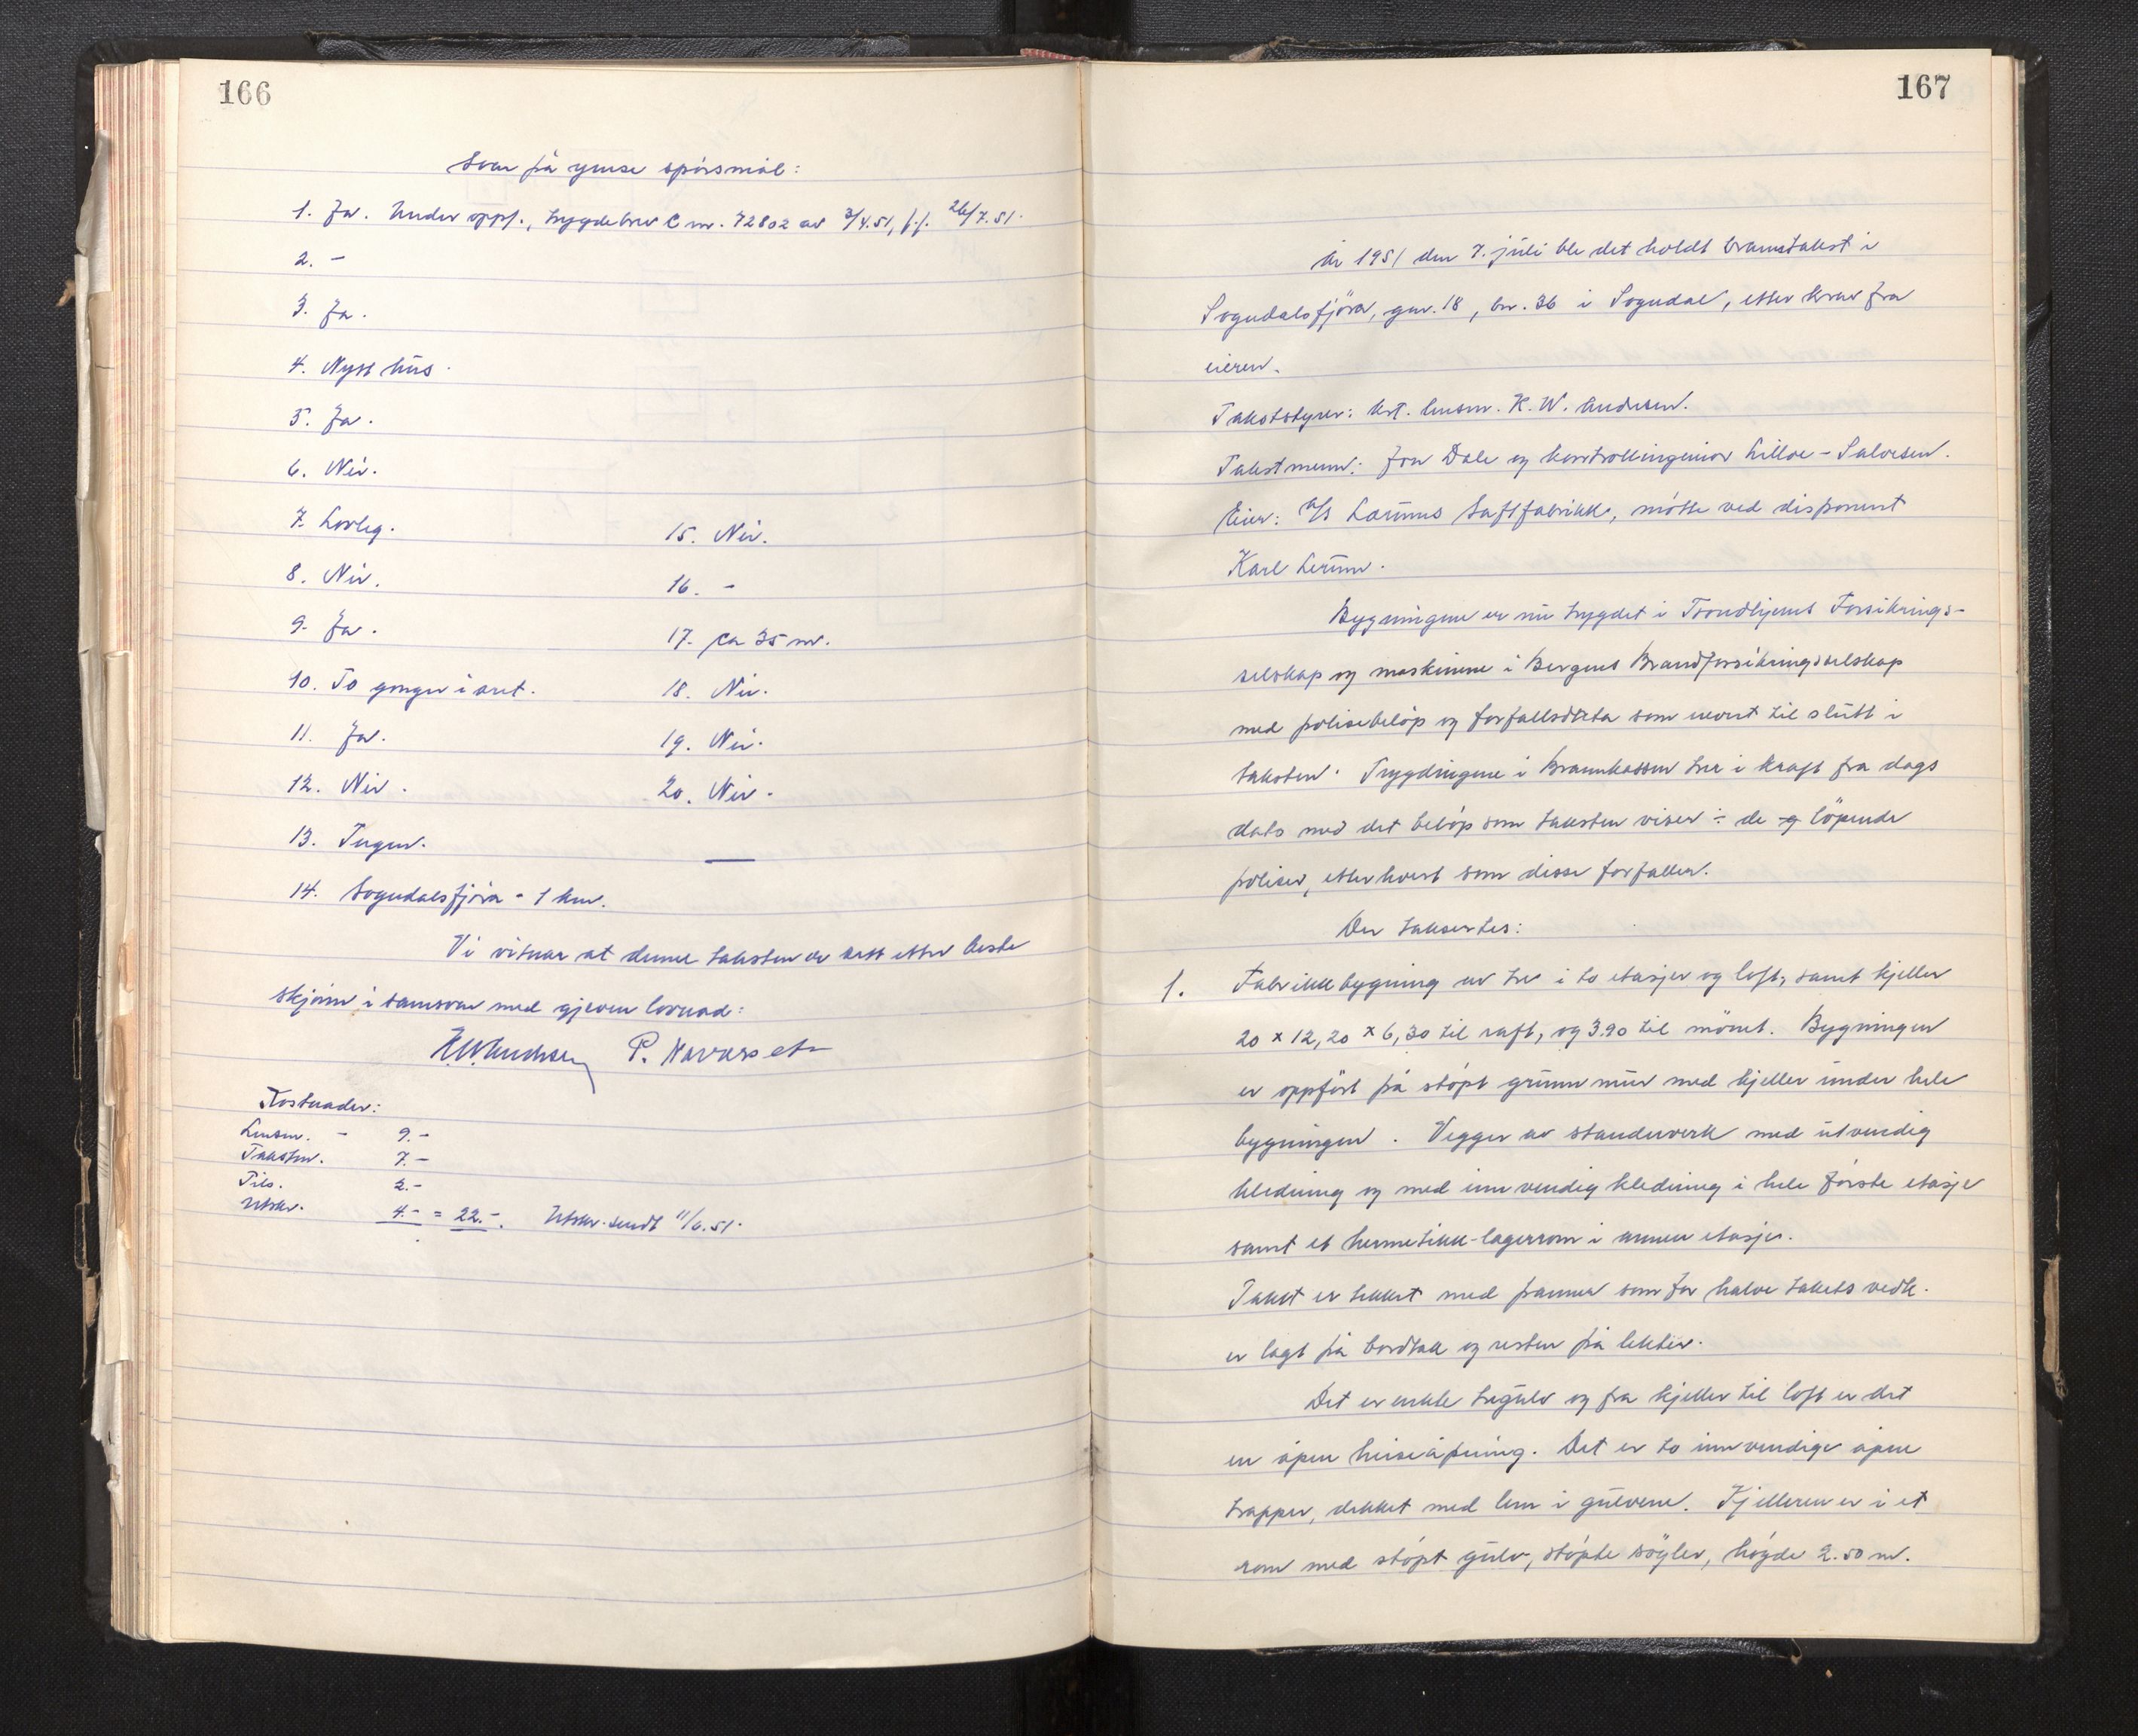 166
Svar på ymse spørsmål:
1. Ja. Under oppf., trygdebrev C nr. 72802 av 3/4.51, f.f. 26/7.51.
2. -
3. Ja.
4. Nytt hus.
5. Ja.
6. Nei.
7. Lovleg.
8. Nei.
9. Ja.
10. To gonger i året.
11. Ja.
12. Nei.
13. Ingen.
14. Sogndalsfjøra - 1 km.
15. Nei.
16. -
17. ca 35 m.
18. Nei.
19. Nei.
20. Nei.
Vi vitnar at denne taksten er sett etter beste
skjønn i samsvar med gjeven lovnad:
K.W. Andresen P. Navarsete
Kostnader:
Lensm. - 9.-
Takstm. 7.-
Tils. 2.-
Utskr. 4.- = 22.-. Utskr. sendt 11/6.51.
167
År 1951 den 7. juli ble det holdt branntakst i
Sogndalsfjöra, gnr. 18, bnr. 36 i Sogndal, etter krav fra
eieren.
Takststyrer: kst. lensm. K. W. Andresen.
Takstmenn: Jon Dale og kontrollingeniør Lilloe-Salvesen.
Eier: A/S Lærums Saftfabrikk, møtte ved disponent
Karl Lerum.
Bygningene er nu trygdet i Trondhjems Forsikrings-
selskap og maskinene i Bergens Brandforsikringsselskap
med polisebeløp og forfallsdata som nevnt til slutt i
taksten. Trygdingene i Brannkassen trer i kraft fra dags
dato med det beløp som taksten viser ÷ de løpende
poliser, etterhvert som disse forfaller.
Der taksertes:
1. Fabrikkbygning av tre i to etasjer og loft, samt kjeller
20 x 12,20 x 6,30 til raft, og 3.90 til mönet. Bygningen
er oppført på støpt grunnmur med kjeller under hele
bygningen. Vegger av standerverk med utvendig
kledning og med innvendig kledning i hele første etasje
samt et hermetikk-lagerrom i annen etasje.
Taket er tekket med panner som for halve takets vedk.
er lagt på bordtak og resten på lekter.
Det er enkle tregulv og fra kjeller til loft er det
en åpen heiseåpning. Det er to innvendige åpne
trapper, dekket med lem i gulvene. Kjelleren er i et
rom med støpt gulv, støpte søyler, høyde 2.50 m.